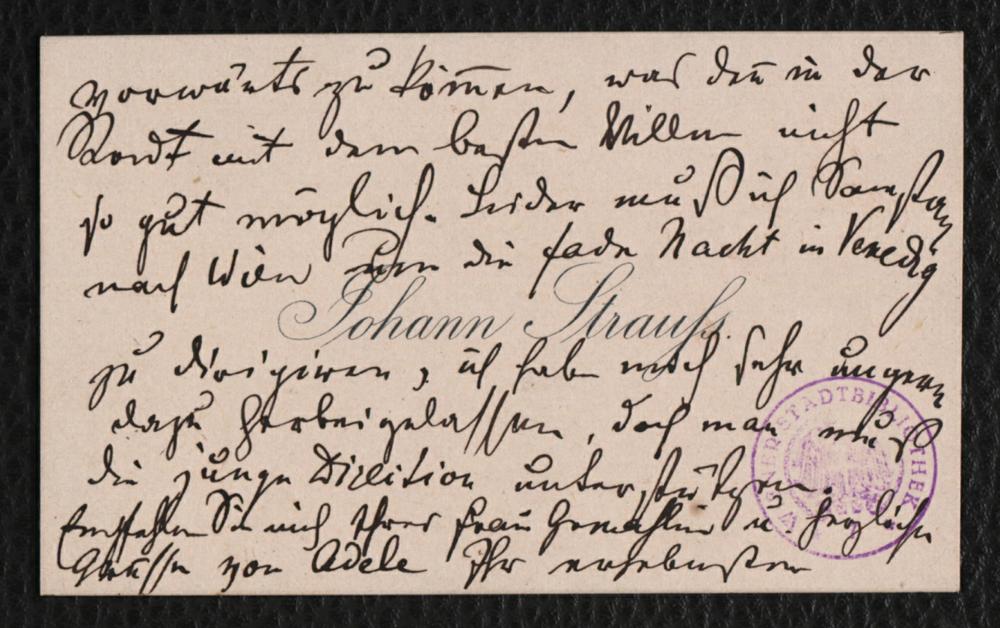 vorwärts zu kom̅en, was den̅ in der
Stadt mit dem besten Willen nicht
so gut möglich. Leider muß ich Samstag
nach Wien um die fade Nacht in Venedig
Johann Strauss.
zu dirigiren, ich habe mich sehr ungern
dazu herbeigelassen, doch man muß
die junge Direction unterstützen.
Empfehlen Sie mich Ihrer Frau Gemahlin u. herzliche
Grüsse von Adele Ihr ergebenster
WIENER STADTBIBLIOTHEK